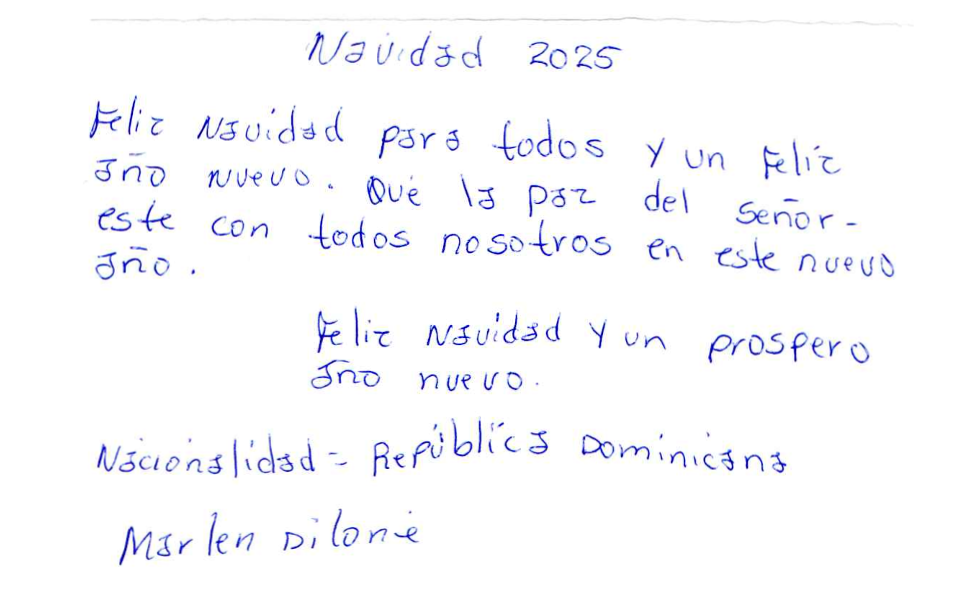 Navidad 2025
Feliz Navidad para todos y un Feliz
año nuevo. Que la paz del Señor-
este con todos nosotros en este nuevo
año.
Feliz Navidad y un prospero
año nuevo.
Nacionalidad = República Dominicana
Marlen Dilone